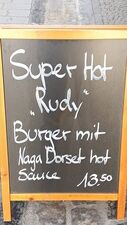 Super Hot
„Rudy"
Burger mit
Naga Dorset hot
Sauce 13.50